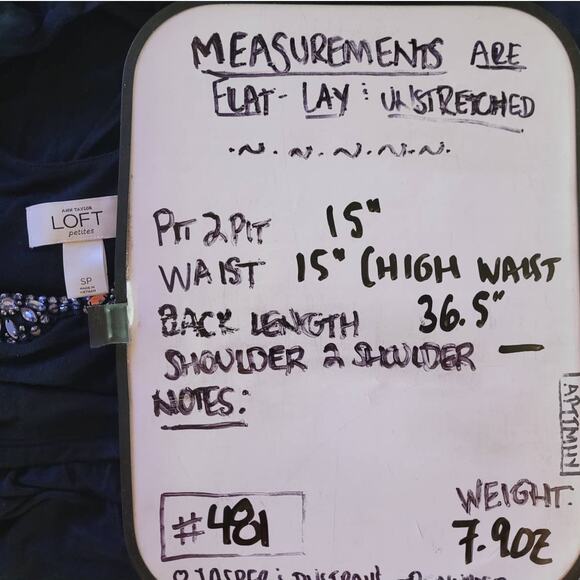 MEASUREMENTS ARE
FLAT-LAY : UNSTRETCHED
ANN TAYLOR
LOFT
petites
SP
MADE IN
VIETNAM
PIT 2 PIT 15"
WAIST 15" (HIGH WAIST
BACK LENGTH 36.5"
SHOULDER 2 SHOULDER —
NOTES:
#481
WEIGHT.
7.9OZ